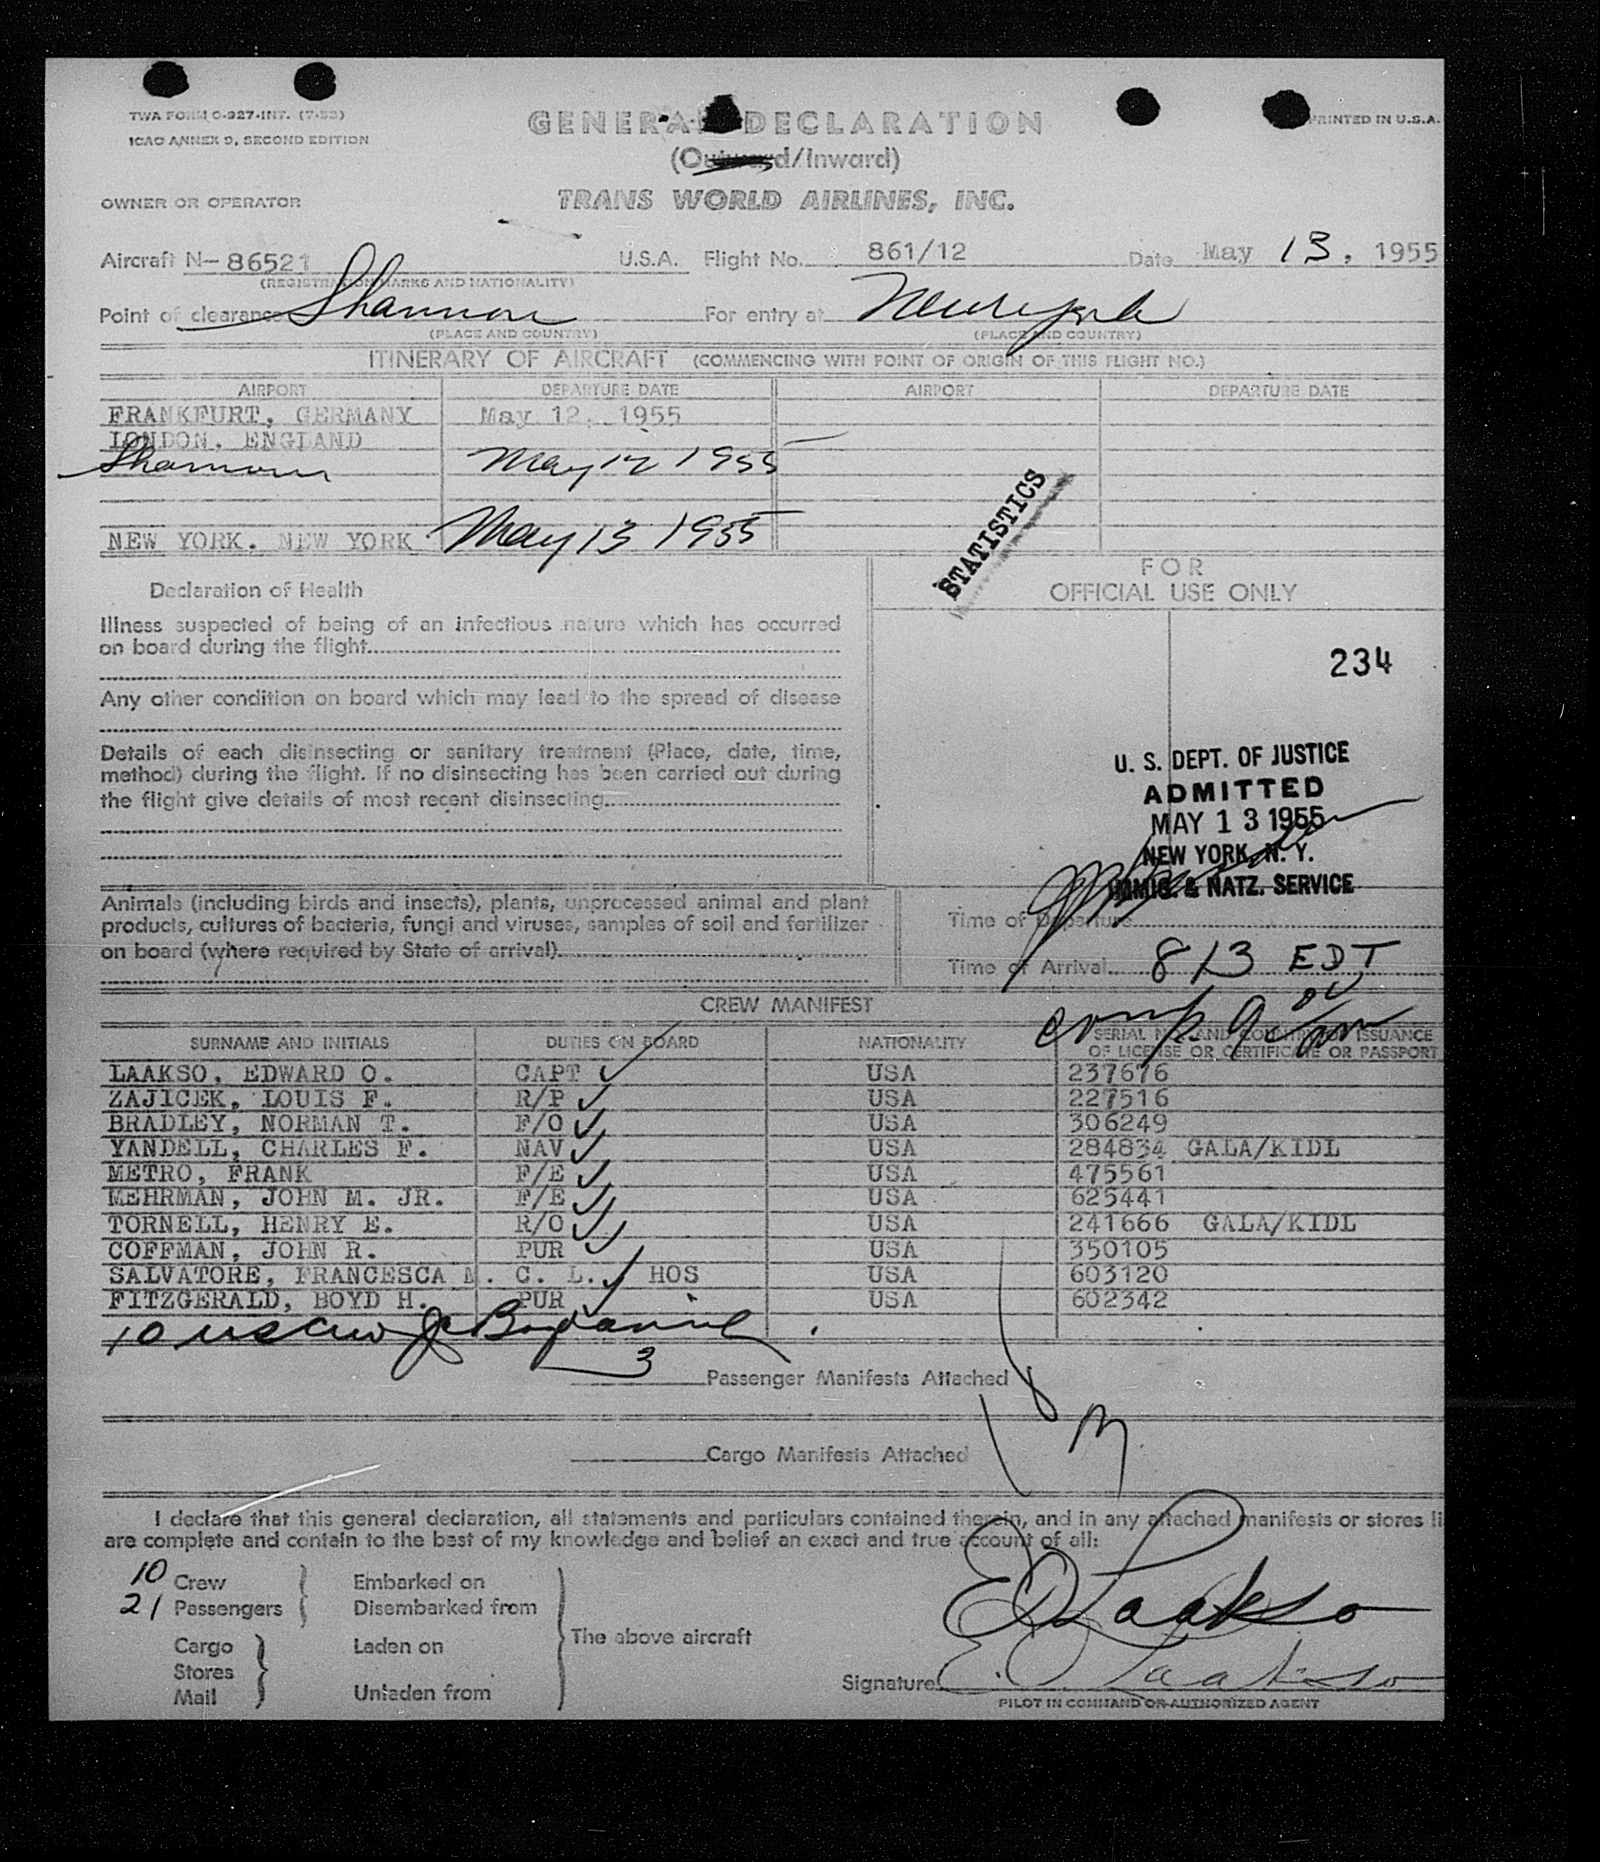 TWA FORM O-927-INT. (7-53)
ICAO ANNEX 9, SECOND EDITION
PRINTED IN U.S.A.
GENERAL DECLARATION
(Outward/Inward)
OWNER OR OPERATOR TRANS WORLD AIRLINES, INC.
Aircraft N-86521 U.S.A. Flight No. 861/12 Date May 13, 1955
(REGISTRATION MARKS AND NATIONALITY)
Point of clearance Shannon For entry at New York
(PLACE AND COUNTRY) (PLACE AND COUNTRY)
ITINERARY OF AIRCRAFT (COMMENCING WITH POINT OF ORIGIN OF THIS FLIGHT NO.)
AIRPORT DEPARTURE DATE AIRPORT DEPARTURE DATE
FRANKFURT, GERMANY May 12, 1955
LONDON, ENGLAND
Shannon May 12 1955
NEW YORK, NEW YORK May 13 1955
STATISTICS
Declaration of Health
FOR
OFFICIAL USE ONLY
Illness suspected of being of an infectious nature which has occurred
on board during the flight
234
Any other condition on board which may lead to the spread of disease
Details of each disinsecting or sanitary treatment (Place, date, time,
method) during the flight. If no disinsecting has been carried out during
the flight give details of most recent disinsecting
U. S. DEPT. OF JUSTICE
ADMITTED
MAY 13 1955
NEW YORK, N. Y.
IMMIG. & NATZ. SERVICE
Animals (including birds and insects), plants, unprocessed animal and plant
products, cultures of bacteria, fungi and viruses, samples of soil and fertilizer
on board (where required by State of arrival)
Time of Departure
Time of Arrival 813 EDT
CREW MANIFEST
SURNAME AND INITIALS DUTIES ON BOARD NATIONALITY SERIAL NO. AND COUNTRY OF ISSUANCE
OF LICENSE OR CERTIFICATE OR PASSPORT
LAAKSO, EDWARD O. CAPT USA 237676
ZAJICEK, LOUIS F. R/P USA 227516
BRADLEY, NORMAN T. F/O USA 306249
YANDELL, CHARLES F. NAV USA 284834 GALA/KIDL
METRO, FRANK F/E USA 475561
MEHRMAN, JOHN M. JR. F/E USA 625441
TORNELL, HENRY E. R/O USA 241666 GALA/KIDL
COFFMAN, JOHN R. PUR USA 350105
SALVATORE, FRANCESCA M. C. L. HOS USA 603120
FITZGERALD, BOYD H. PUR USA 602342
10
3 Passenger Manifests Attached
Cargo Manifests Attached
I declare that this general declaration, all statements and particulars contained therein, and in any attached manifests or stores li
are complete and contain to the best of my knowledge and belief an exact and true account of all:
10 Crew Embarked on
21 Passengers Disembarked from
The above aircraft
Cargo Laden on
Stores
Mail Unladen from
E O Laakso
Signature E. O. Laakso
PILOT IN COMMAND OR AUTHORIZED AGENT